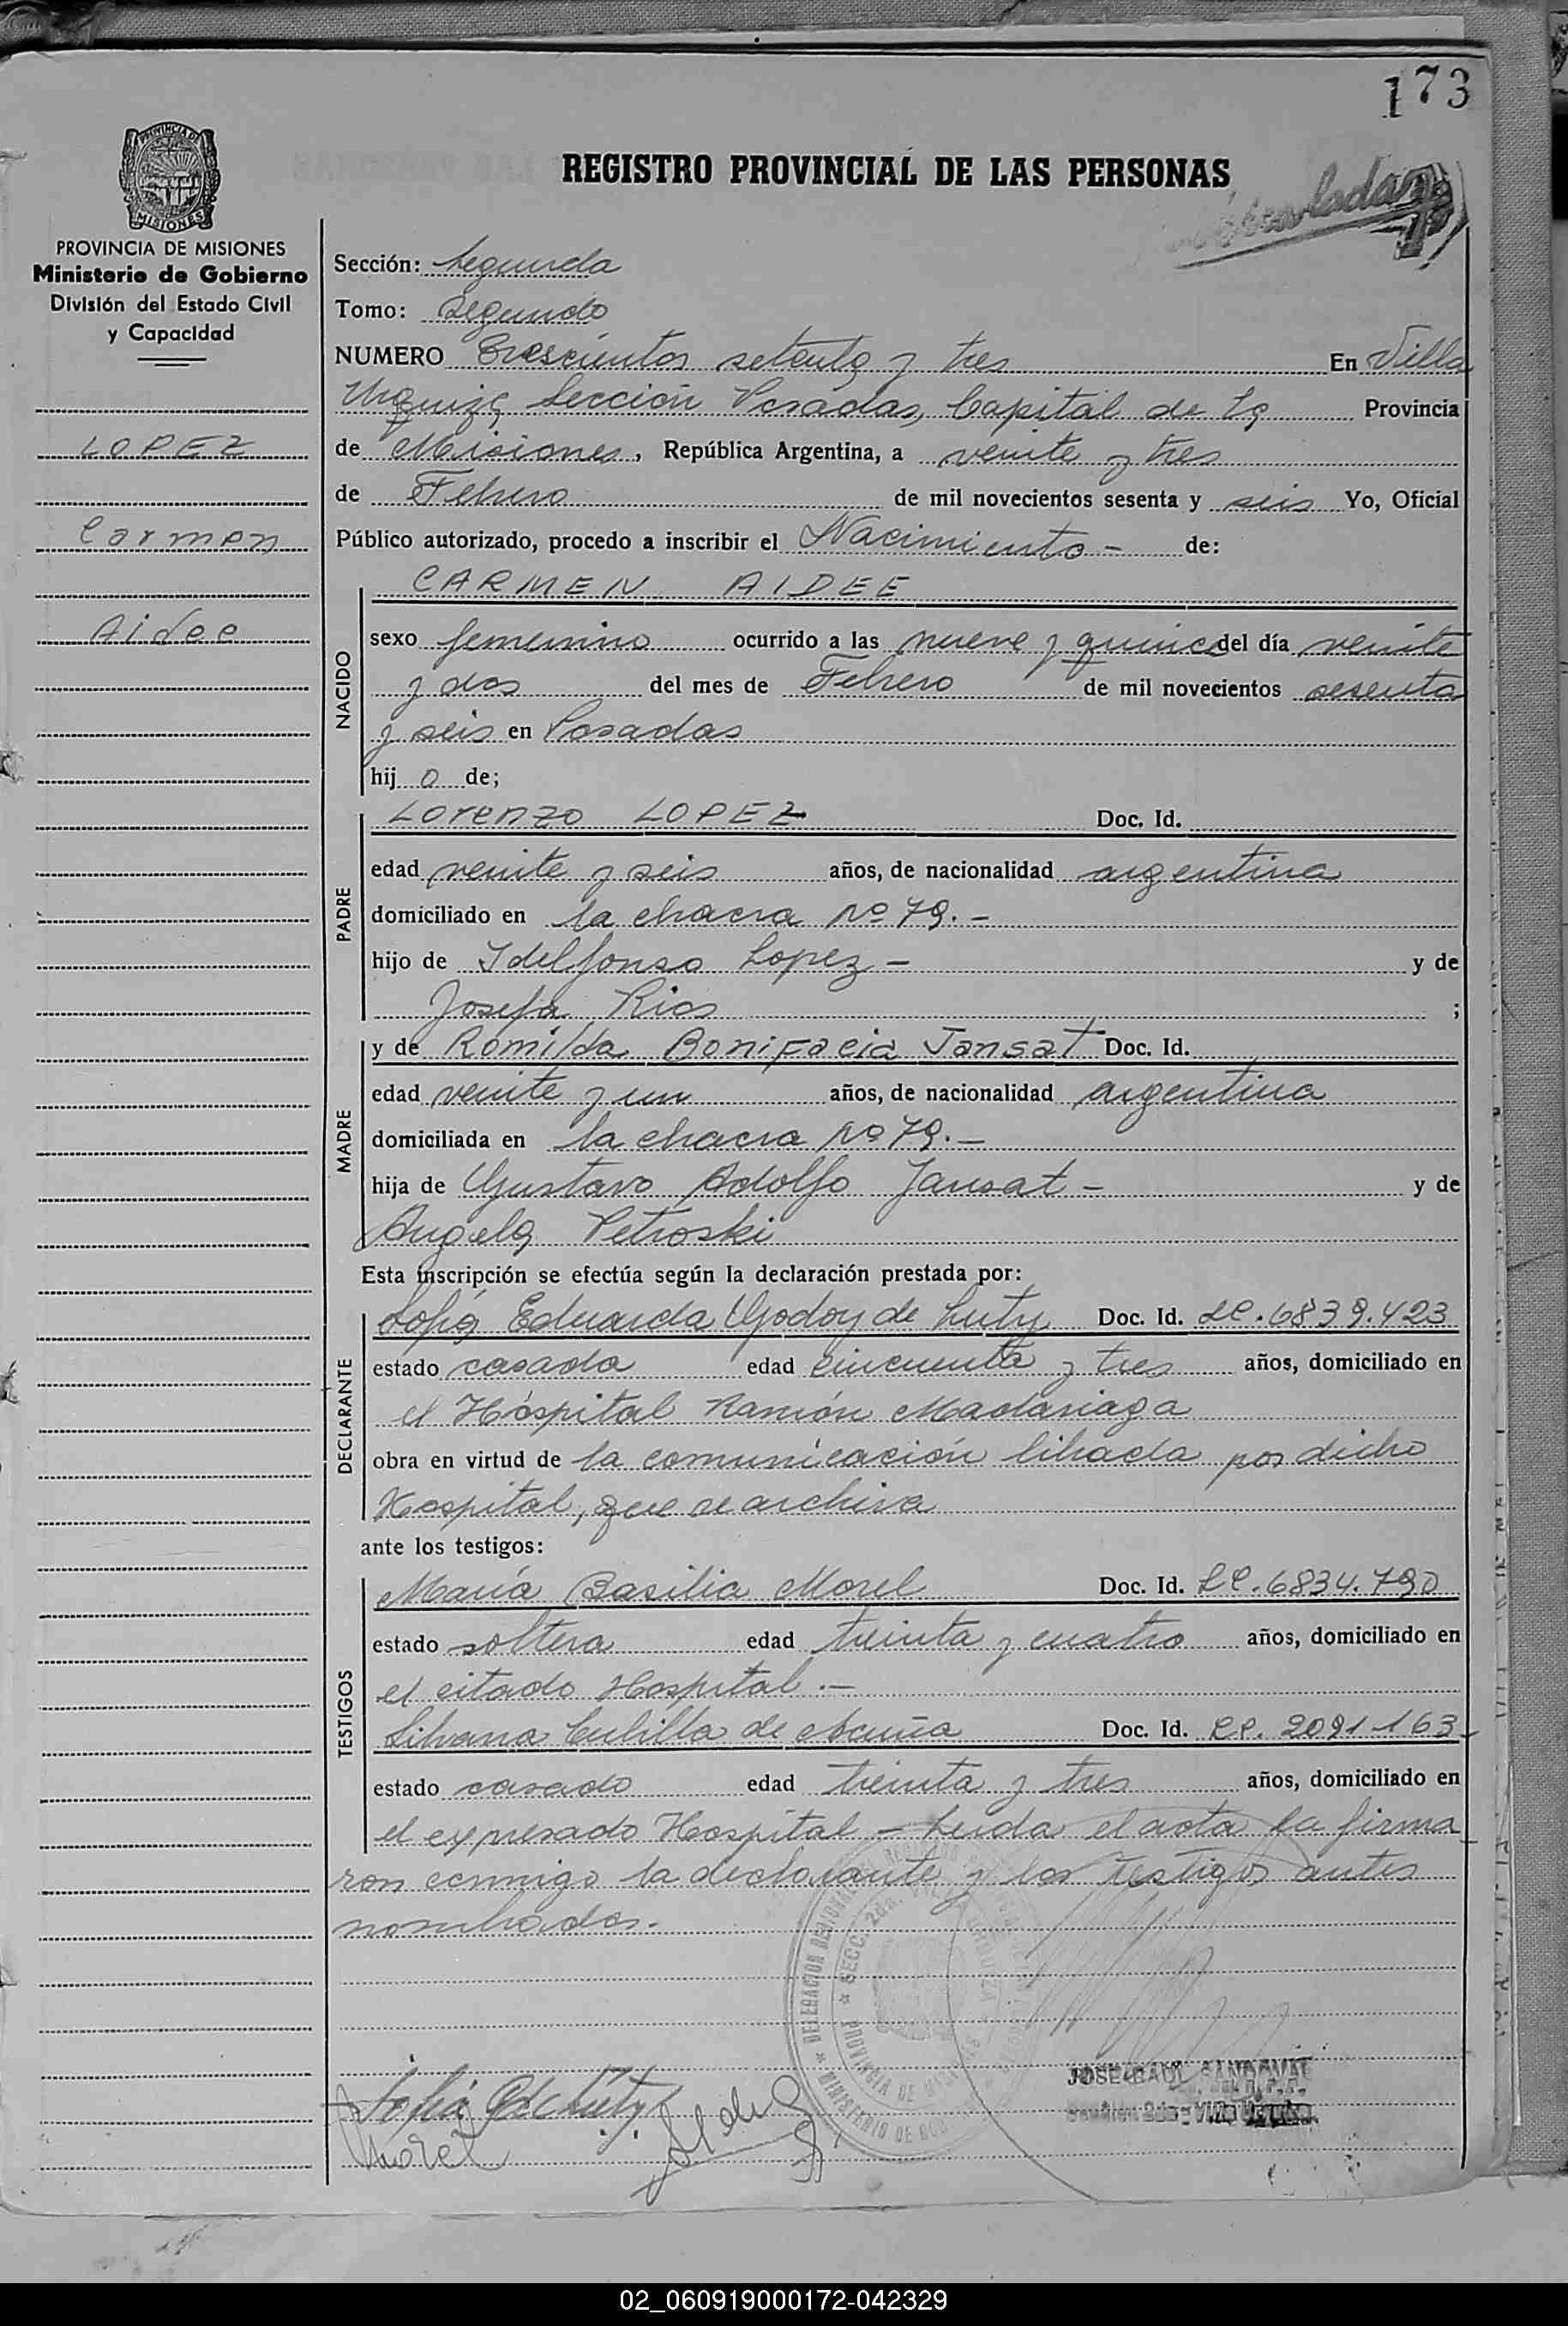 173
REGISTRO PROVINCIAL DE LAS PERSONAS
PROVINCIA DE
MISIONES
PROVINCIA DE MISIONES
Ministerio de Gobierno
División del Estado Civil
y Capacidad
LOPEZ
Carmen
Aidee
Sección: Segunda
Tomo: Segundo
NUMERO Trescientos setenta y tres En Villa
Urquiza Sección Posadas, Capital de la Provincia
de Misiones, República Argentina, a veinte y tres
de Febrero de mil novecientos sesenta y seis Yo, Oficial
Público autorizado, procedo a inscribir el Nacimiento - de:
CARMEN AIDEE
NACIDO
sexo femenino ocurrido a las nueve y quince del día veinte
y dos del mes de Febrero de mil novecientos sesenta
y seis en Posadas
hij o de;
PADRE
Lorenzo LOPEZ Doc. Id.
edad veinte y seis años, de nacionalidad argentina
domiciliado en la chacra Nº 79. -
hijo de Idelfonso Lopez - y de
Josefa Rios ;
MADRE
y de Romilda Bonifacia Jansat Doc. Id.
edad veinte y un años, de nacionalidad argentina
domiciliada en la chacra Nº 79. -
hija de Gustavo Adolfo Jansat - y de
Angela Petroski
Esta inscripción se efectúa según la declaración prestada por:
DECLARANTE
Sofía Eduarda Godoy de Luty Doc. Id. LC. 6839.423
estado casada edad cincuenta y tres años, domiciliado en
el Hospital Ramón Madariaga
obra en virtud de la comunicación librada por dicho
Hospital, que se archiva
ante los testigos:
TESTIGOS
María Basilia Morel Doc. Id. LC. 6834.790
estado soltera edad treinta y cuatro años, domiciliado en
el citado Hospital. -
Silvana Cubilla de Acuña Doc. Id. LC. 2091163
estado casado edad treinta y tres años, domiciliado en
el expresado Hospital - Leida el acta la firma
ron conmigo la declarante y los testigos antes
nombrados. -
SECC. 2da. VILLA URQUIZA
PROVINCIA DE MISIONES
DELEGACION REGIONAL
MINISTERIO DE
JOSE RAUL SANDOVAL
Sección 2da - Villa Urquiza
Sofía G de Luty
Morel
02_060919000172-042329